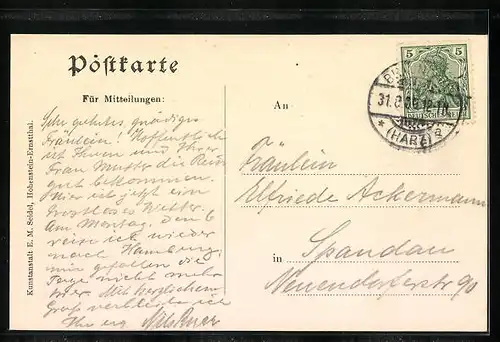 Postkarte
Für Mitteilungen:
Sehr geehrtes gnädiges
Fräulein! Hoffentlich
ist Ihnen und Ihrer
Frau Mutter die Reise
gut bekommen.
Hier ist jetzt ein
trostloses Wetter.
Am Montag, den 6
reise ich wieder
nach Hamburg,
mir gefallen die
Tage nicht mehr
hier. Mit herzlichem
Gruß verbleibe ich
Ihr erg.
An
Fräulein
Elfriede Ackermann
in Spandau
Neuendorferstr 90
5 5
DEUTSCHES REICH
31.8.
(HARZ)
Kunstanstalt E. M. Seidel, Hohenstein-Ernstthal.